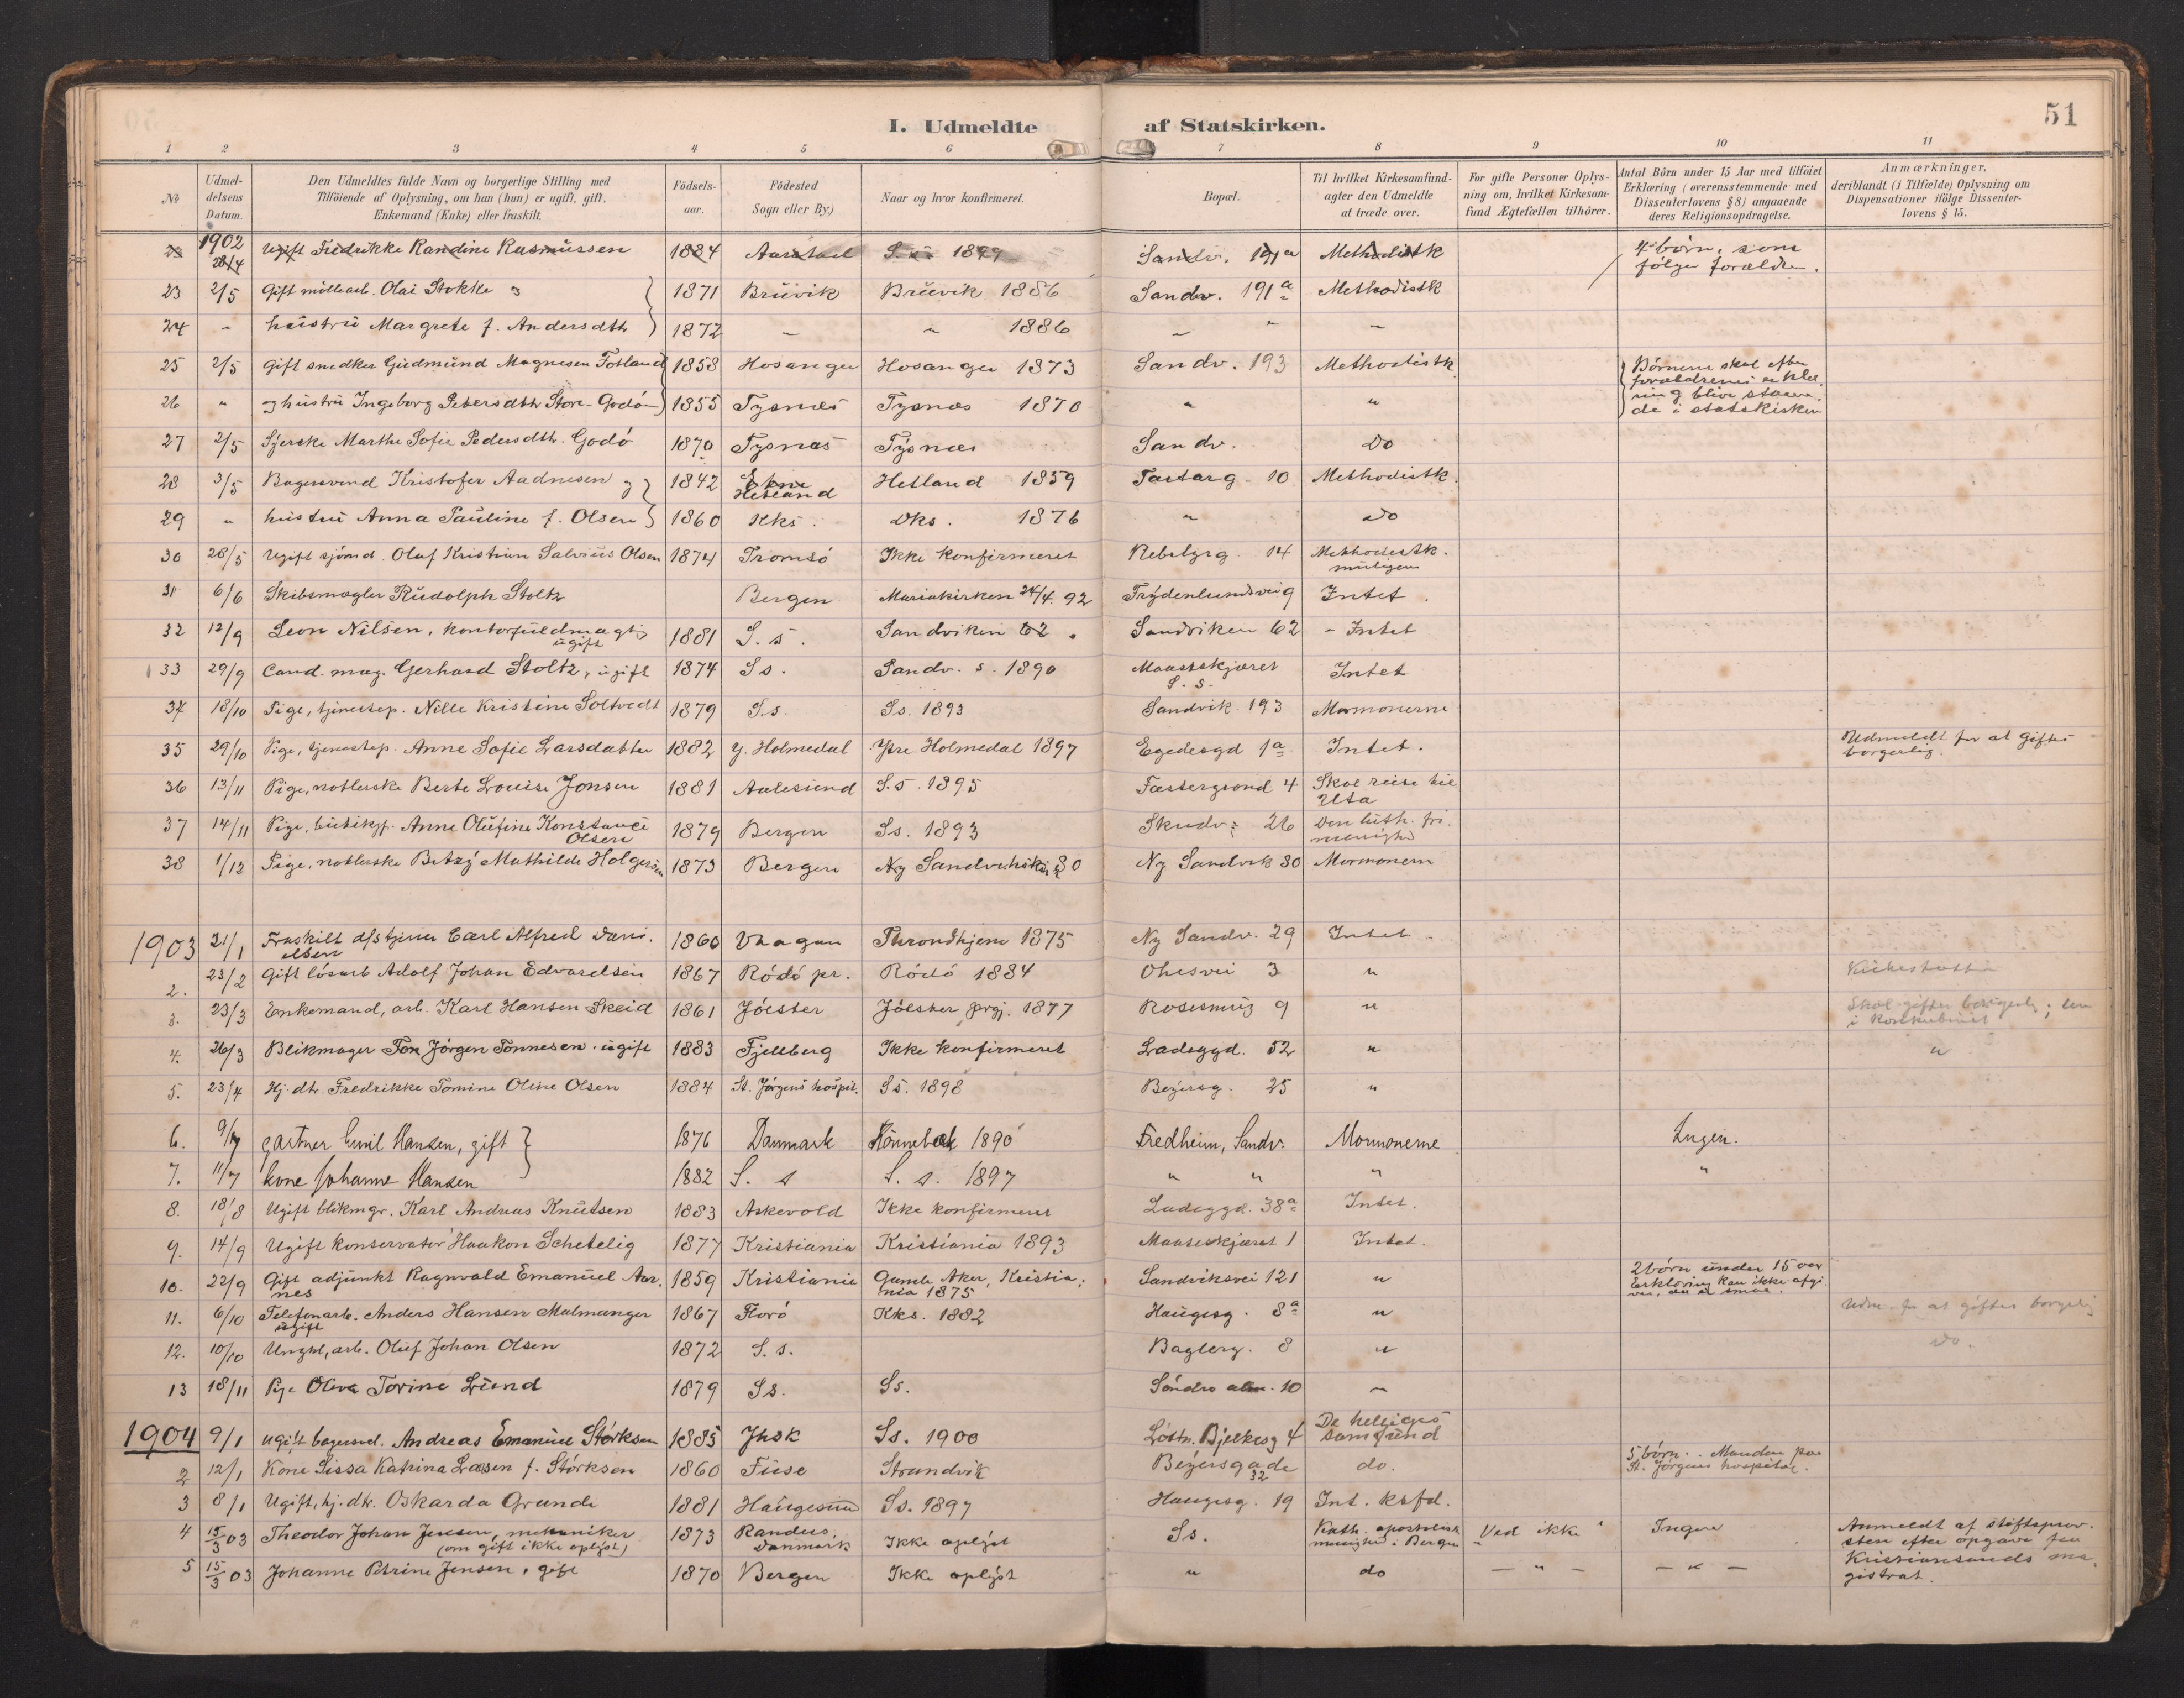 51
I. Udmeldte af Statskirken.
1 2 3 4 5 6 7 8 9 10 11
№
Udmel-
delsens
Datum.
Den Udmeldtes fulde Navn og borgerlige Stilling med
Tilföiende af Oplysning, om han (hun) er ugift, gift,
Enkemand (Enke) eller fraskilt.
Födsels-
aar.
Födested
Sogn eller By.)
Naar og hvor konfirmeret.
Bopæl.
Til hvilket Kirkesamfund-
agter den Udmeldte
at træde over.
For gifte Personer Oplys-
ning om, hvilket Kirkesam-
fund Ægtefællen tilhörer.
Antal Börn under 15 Aar med tilföiet
Erklæring (overensstemmende med
Dissenterlovens § 8) angaaende
deres Religionsopdragelse.
Anmærkninger,
deriblandt (i Tilfælde) Oplysning om
Dispensationer ifölge Dissenter-
lovens § 15.
1902
28/4 Ugift Fredrikke Randine Rasmussen 1884 Aarstad S.s. 1899 Sandv. 191a Methodistk 4 börn, som
følger forældre.
23 2/5 Gift möllearb. Olai Stokke og 1871 Bruvik Bruvik 1886 Sandv. 191a Methodistk
24 " hustru Margrete f. Andersdtr 1872 " " 1886 " " "
25 2/5 Gift snedker Gudmund Magnesen Totland 1858 Hosanger Hosanger 1873 Sandv. 193 Methodistk Børnene skal efter
forældrenes erklæ-
ring blive staaen-
de i statskirken
26 " og hustru Ingeborg Petersdtr Store-Godö 1855 Tysnæs Tysnæs 1870 " "
27 2/5 Syerske Marthe Sofie Pedersdtr. Godö 1870 Tysnæs Tysnæs Sandv. Do
28 3/5 Bagersvend Kristofer Aadnesen og 1842 Hetland Hetland 1859 Tartarg. 10 Methodistk.
29 " hustru Anna Pauline f. Olsen 1860 Kks. Dks. 1876 " Do
30 28/5 Ugift sjömd. Olaf Kristian Salvius Olsen 1874 Tromsö Ikke konfirmeret Rebslyrg. 14 Methodistk.
muligens
31 6/6 Skibsmægler Rudolph Stoltz Bergen Mariakirken 24/4. 92 Frydenlundsvei 9 Intet.
32 12/9 Leon Nilsen, kontorfuldmægtig
ugift 1881 S.s. Sandviken 62. Sandviken 62 - Intet
33 29/9 Cand. mag. Gerhard Stoltz, ugift 1874 Ss. Sandv. s. 1890 Maaseskjæret
S.s. Intet
34 18/10 Pige, tjenestep. Nille Kristine Soltvedt 1879 S.s. Ss. 1893 Sandvik. 193 Mormonerne
35 29/10 Pige, tjenestep. Anne Sofie Larsdatter 1882 Y. Holmedal Ytre Holmedal 1897 Egedesgd 1a Intet. Udmeldt for at giftes
borgerlig.
36 13/11 Pige, notlerske Berte Louise Jonsen 1881 Aalesund S.s. 1895 4 Skal reise til
Uta
37 14/11 Pige, butikjf. Anne Olufine Konstance
Olsen 1879 Bergen Ss. 1893 Skudv: 26 Den luth. fri-
menighed
38 1/12 Pige, notlerske Betzy Mathilde Holgersen 1873 Bergen Ny Sandvikskir 80 Ny Sandvik 30 Mormonern
1903 21/1 Fraskilt d/stjener Carl Alfred Dani-
elsen 1860 Vaagan Throndhjem 1875 Ny Sandv. 29 Intet.
2. 23/2 Gift lösarb Adolf Johan Edvardsen 1867 Rödö pr. Rödö 1884 Ohesvei 3 "
3. 23/3 Enkemand, arb. Karl Hansen Skeid 1861 Jölster Jölster prgj. 1877 Rosesmug 9 " Skal giftes borgerlig; lever
i konkubinat
4. 26/3 Blikmager Tom Jörgen Tönnesen. ugift 1883 Fjellberg Ikke konfirmeret Ladeggd. 52 " "
5. 23/4 Hj. dtr. Fredrikke Tomine Oline Olsen 1884 St. Jörgens hospit. Ss. 1898 Beyersg. 25 "
6. 9/7 gartner Emil Hansen, gift 1876 Danmark Rönnebæk 1890 Fredheim, Sandv. Mormonerne Ingen.
7. 11/7 kone Johanne Hansen 1882 S. s S. s. 1897 " " " "
8. 18/8 Ugift blikmgr. Karl Andreas Knutsen 1883 Askevold Ikke konfirmeret Ladeggd. 38a Intet.
9. 14/9 Ugift konservator Haakon Schetelig 1877 Kristiania Kristiania 1893 Maaseskjæret 1 Intet.
10. 22/9 Gift adjunkt Ragnvald Emanuel Aar-
nes 1859 Kristiania Gamle Aker, Kristia-
nia 1875 Sandviksvei 121 " 2 börn under 15 aar
Erklæring kan ikke afgi-
ves, da de er smaa.
11. 6/10 Telefonarb. Anders Hansen Malmanger
ugift 1867 Florö Kks. 1882 Haugesg. 8a " Udm. for at giftes borgerlig
12. 10/10 Ungkl, arb. Oluf Johan Olsen 1872 S.s. Baglerg. 8 " Do.
13 18/11 Pige Oliva Torine Lund 1879 Ss. Ss. Söndre alm. 10 "
1904 9/1 ugift bagersvd. Andreas Emanuel Störksen 1885 Jksk Ss. 1900 Løstn. Bjelkesg 4 De helliges
samfund
2 12/1 Kone Sissa Katrina Larsen f. Störksen 1860 Fuse Strandvik Beyersgade
32 do. 5 börn. Manden paa
St. Jörgens hospital.
3 8/1 Ugift, hj. dtr. Oskarda Grunde 1881 Haugesund Ss. 1897 Haugesg. 19 Int. ksfd.
4 15/3 03 Theodor Johan Jensen, mekaniker
(om gift ikke oplyst) 1873 Randers,
Danmark Ikke oplyst Ss. Kath. apostolisk
menighed i Bergen Ved ikke Ingen Anmeldt af stiftsprov-
sten efter opgave fra
Kristiansunds ma-
gistrat.
5 15/3 03 Johanne Petrine Jensen, gift 1870 Bergen Ikke oplyst " do — " — — " —